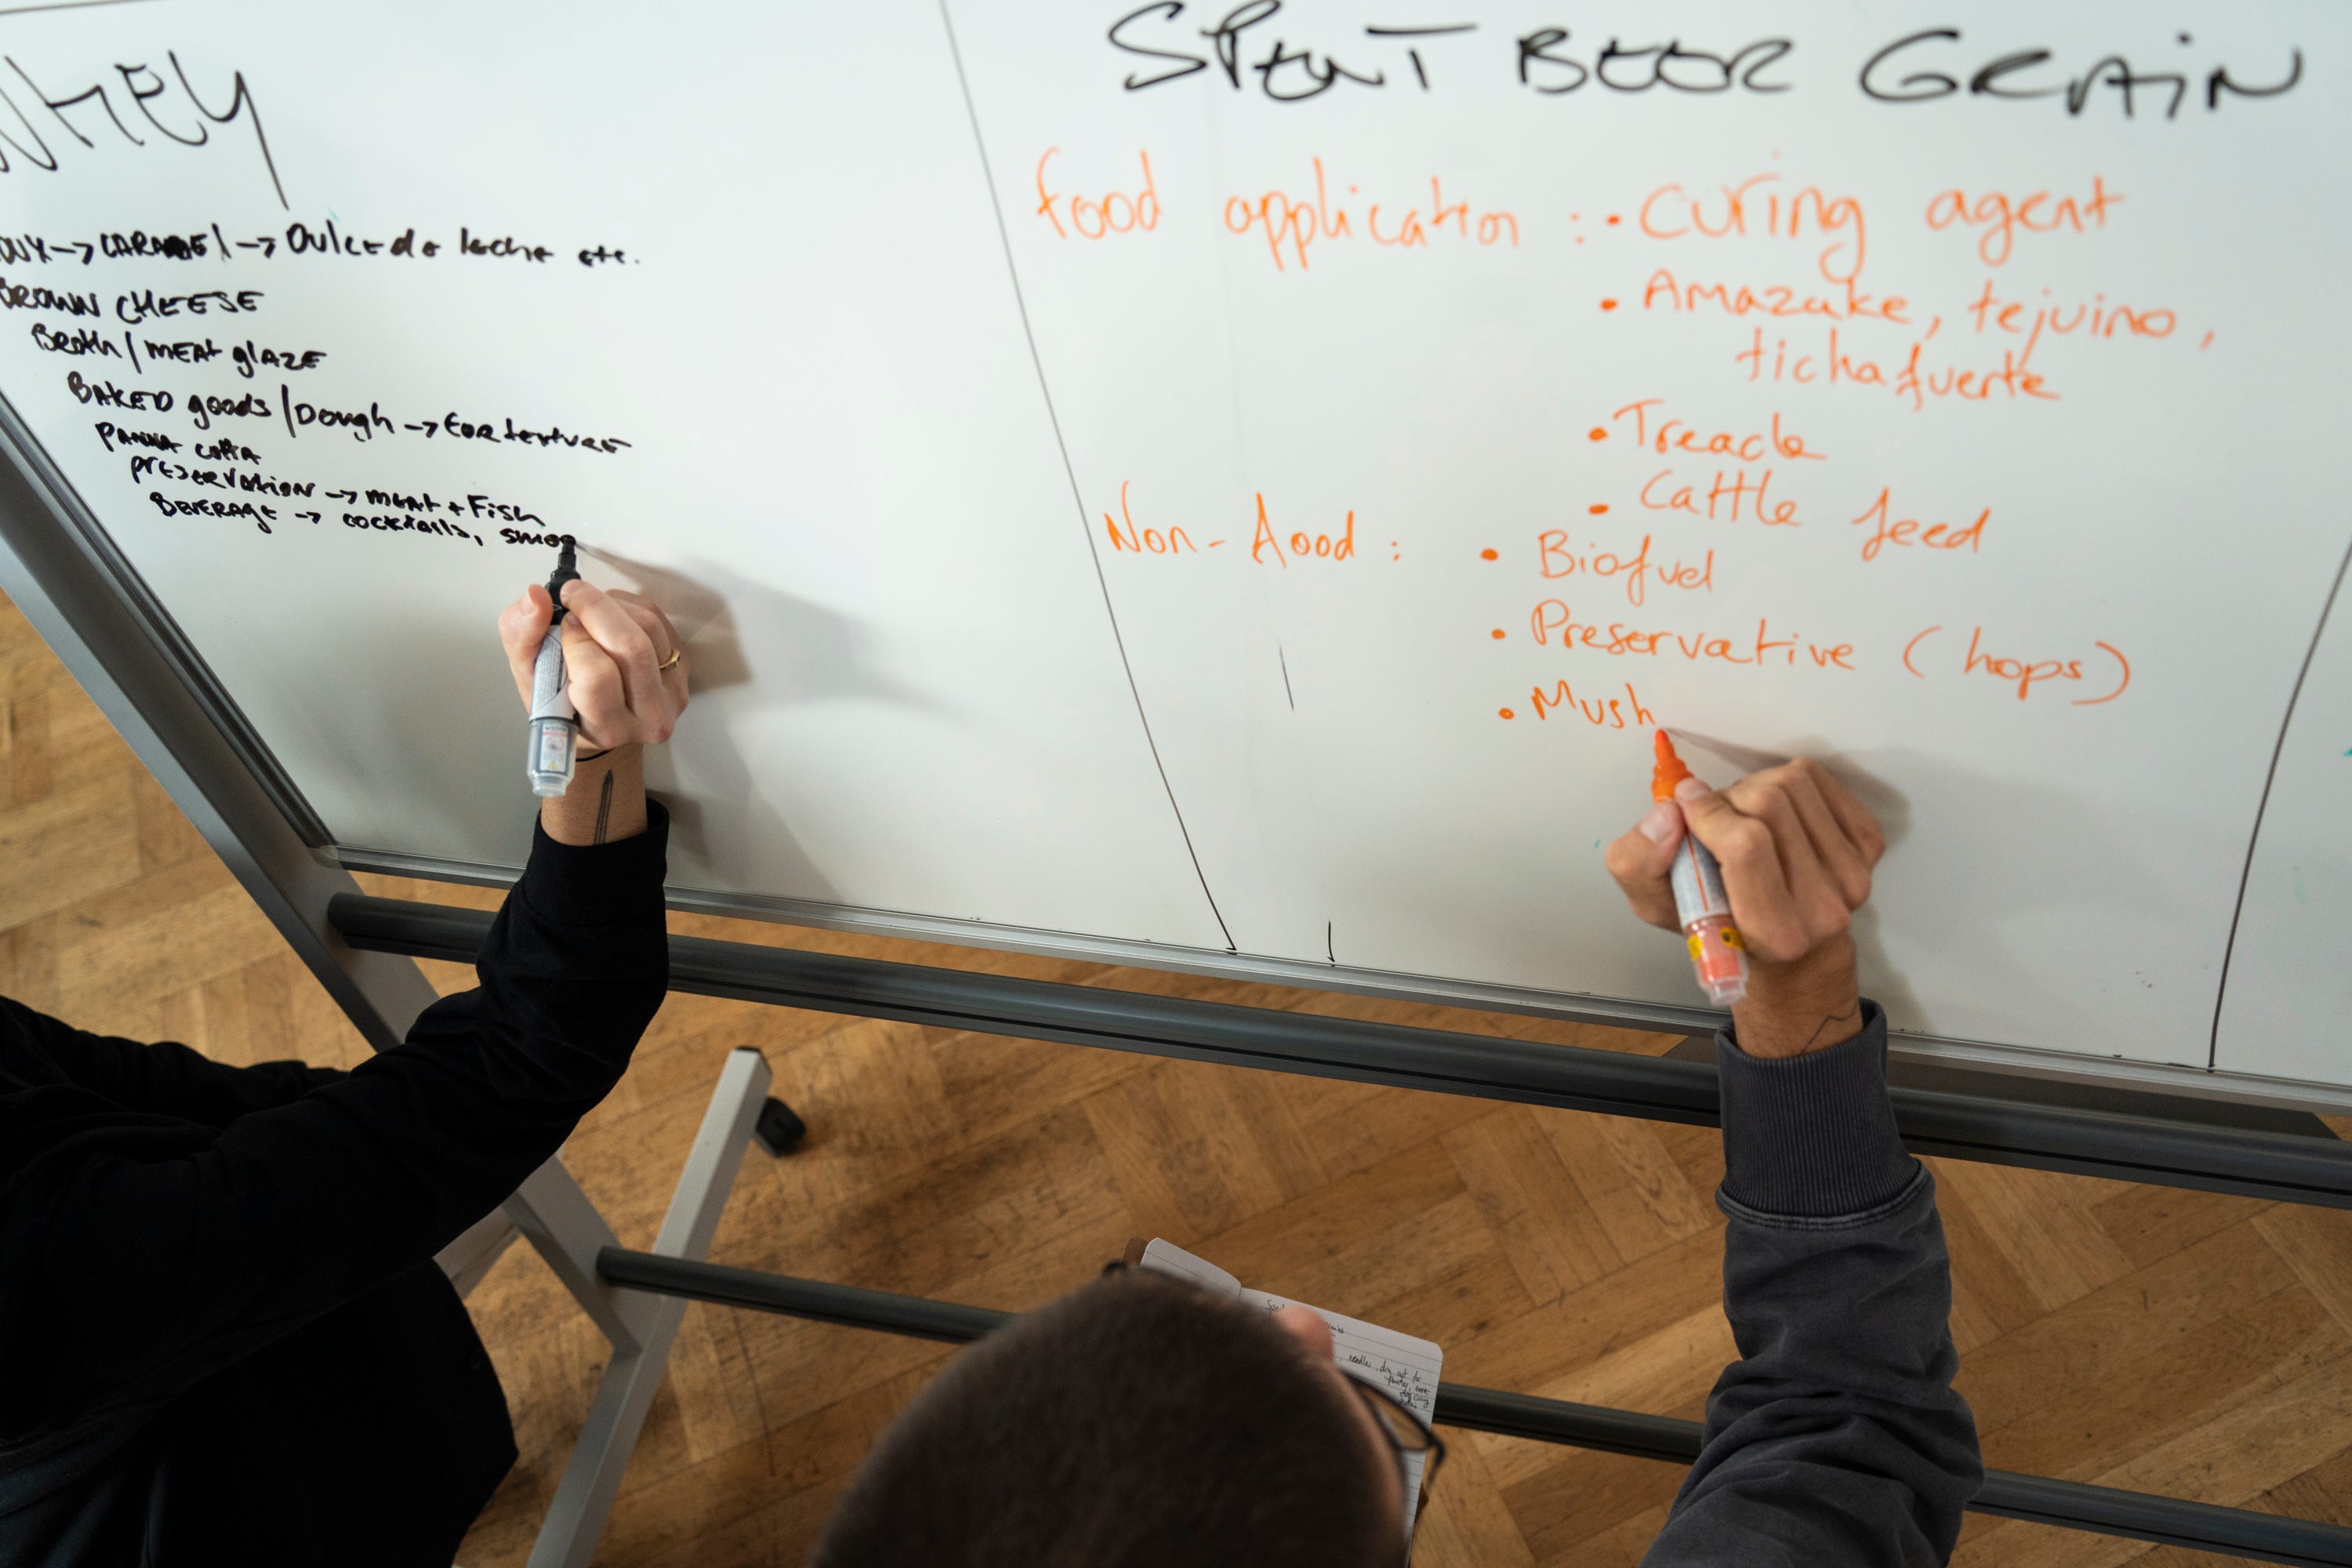 WHEY
→ CARAMEL → Dulce de leche etc.
BROWN CHEESE
Broth/MEAT glAZE
BAKED goods/Dough → for texture
PANNA cottA
preservation → meat + Fish
BEVERAGE → cocktails, smoo
SPENT BEER GRAIN
food application : • Curing agent
• Amazake, tejuino,
ticha fuerte
• Treacle
• Cattle feed
Non-food : • Biofuel
• Preservative (hops)
• Mush